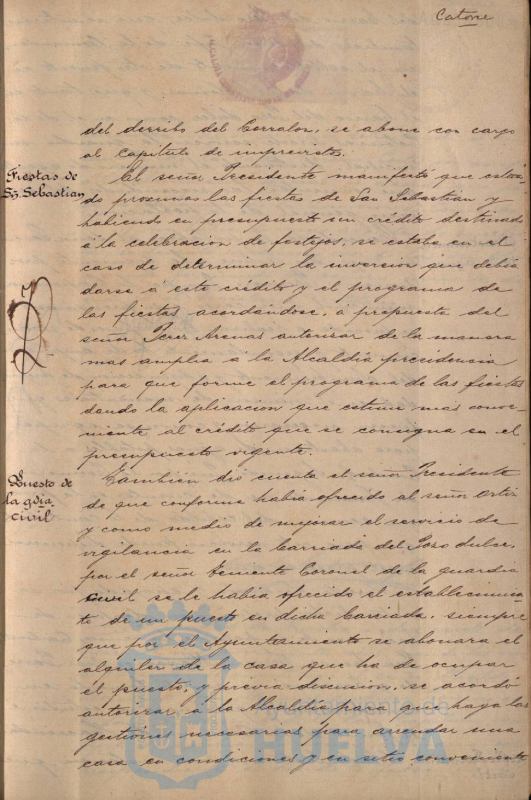 Catorce
del derribo del Corralon, se abone con cargo
al capitulo de imprevistos.
Fiestas de
Sn. Sebastian
El señor Presidente manifestó que estan
do proximas las fiestas de San Sebastian y
habiendo en presupuesto un crédito destinado
á la celebracion de festejos, se estaba en el
caso de determinar la inversion que debia
darse á este crédito y el programa de
las fiestas acordándose, á propuesta del
señor Perez Arenas autorizar de la manera
mas amplia á la Alcaldia presidencia
para que forme el programa de las fiestas
dando la aplicacion que estime mas conve
niente al crédito que se consigna en el
presupuesto vigente.
Puesto de
la gdia
civil
Tambien dió cuenta el señor Presidente
de que conforme habia ofrecido al señor Ortiz
y como medio de mejorar el servicio de
vigilancia en la barriada del Pozo dulce,
por el señor Teniente Coronel de la guardia
civil se le habia ofrecido el establecimien
to de un puesto en dicha barriada, siempre
que por el Ayuntamiento se abonara el
alquiler de la casa que ha de ocupar
el puesto, y previa discusion, se acordó
autorizar á la Alcaldia para que haga las
gestiones necesarias para arrendar una
casa en condiciones y en sitio conveniente
HUELVA